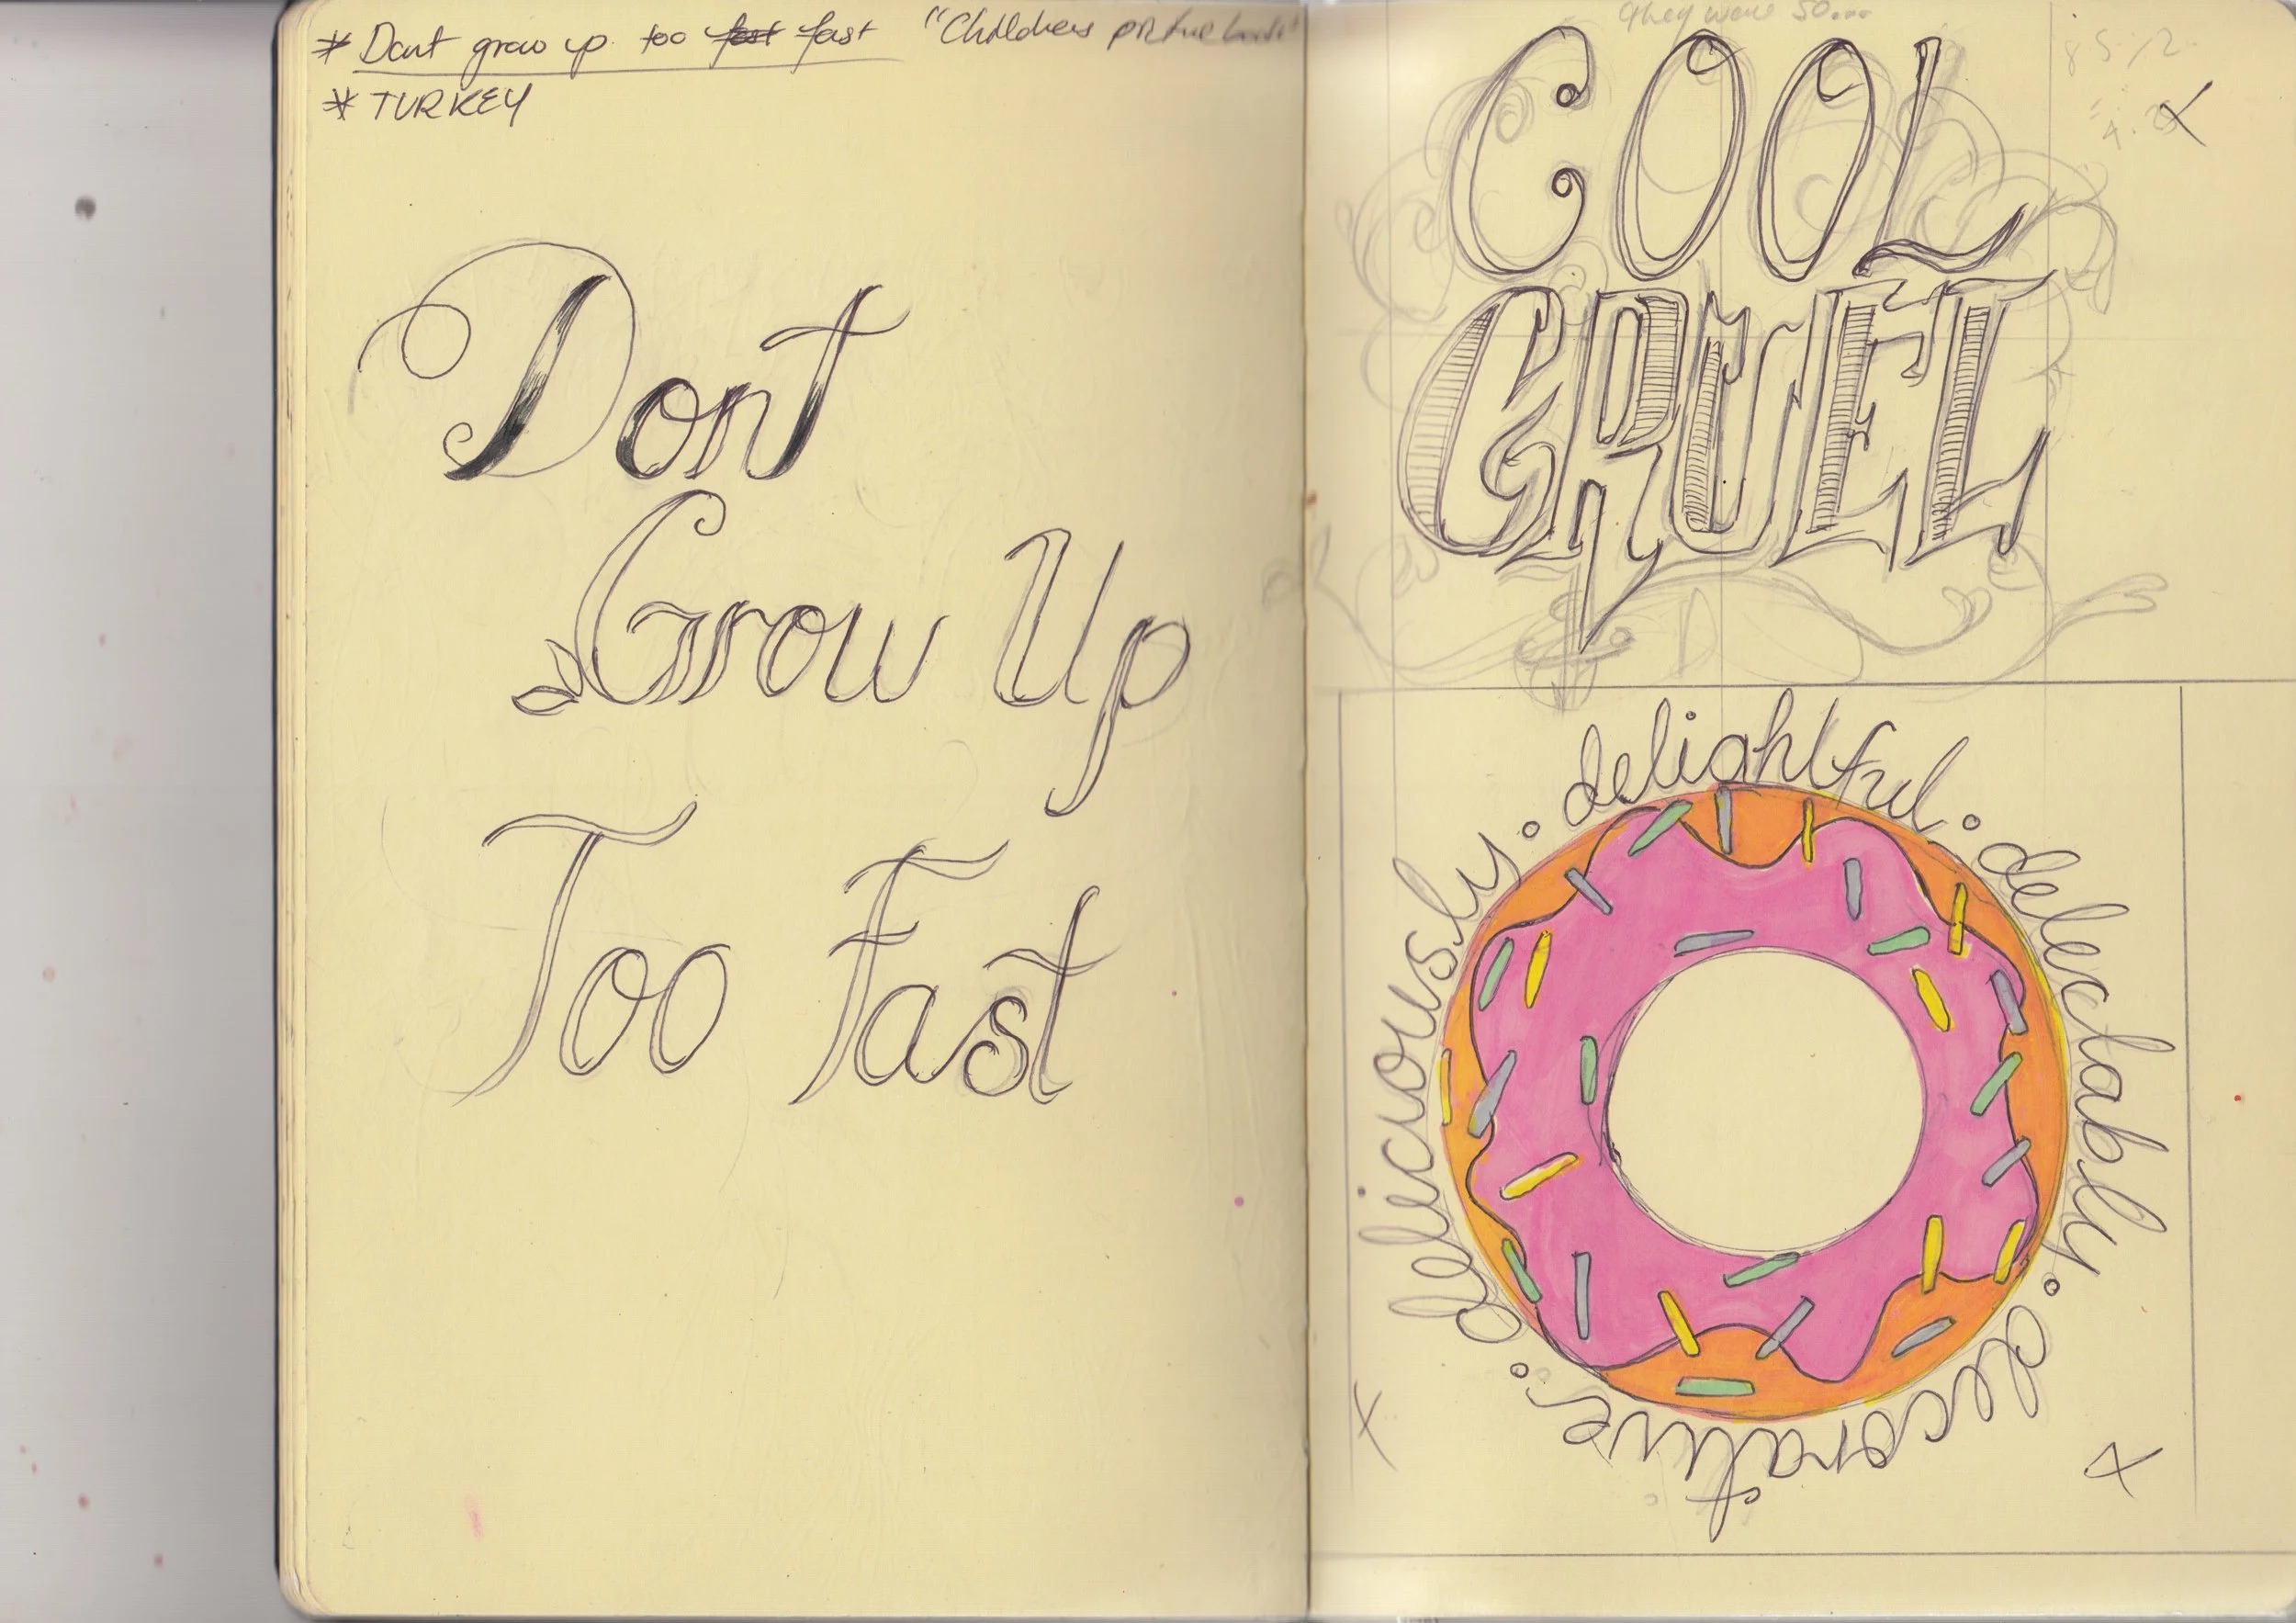 * Dont grow up too fast fast "Childrens picture book"
* TURKEY
Dont
Grow Up
Too Fast
they were so...
COOL
CRUEL
deliciously. delightful. delectably. decorative.